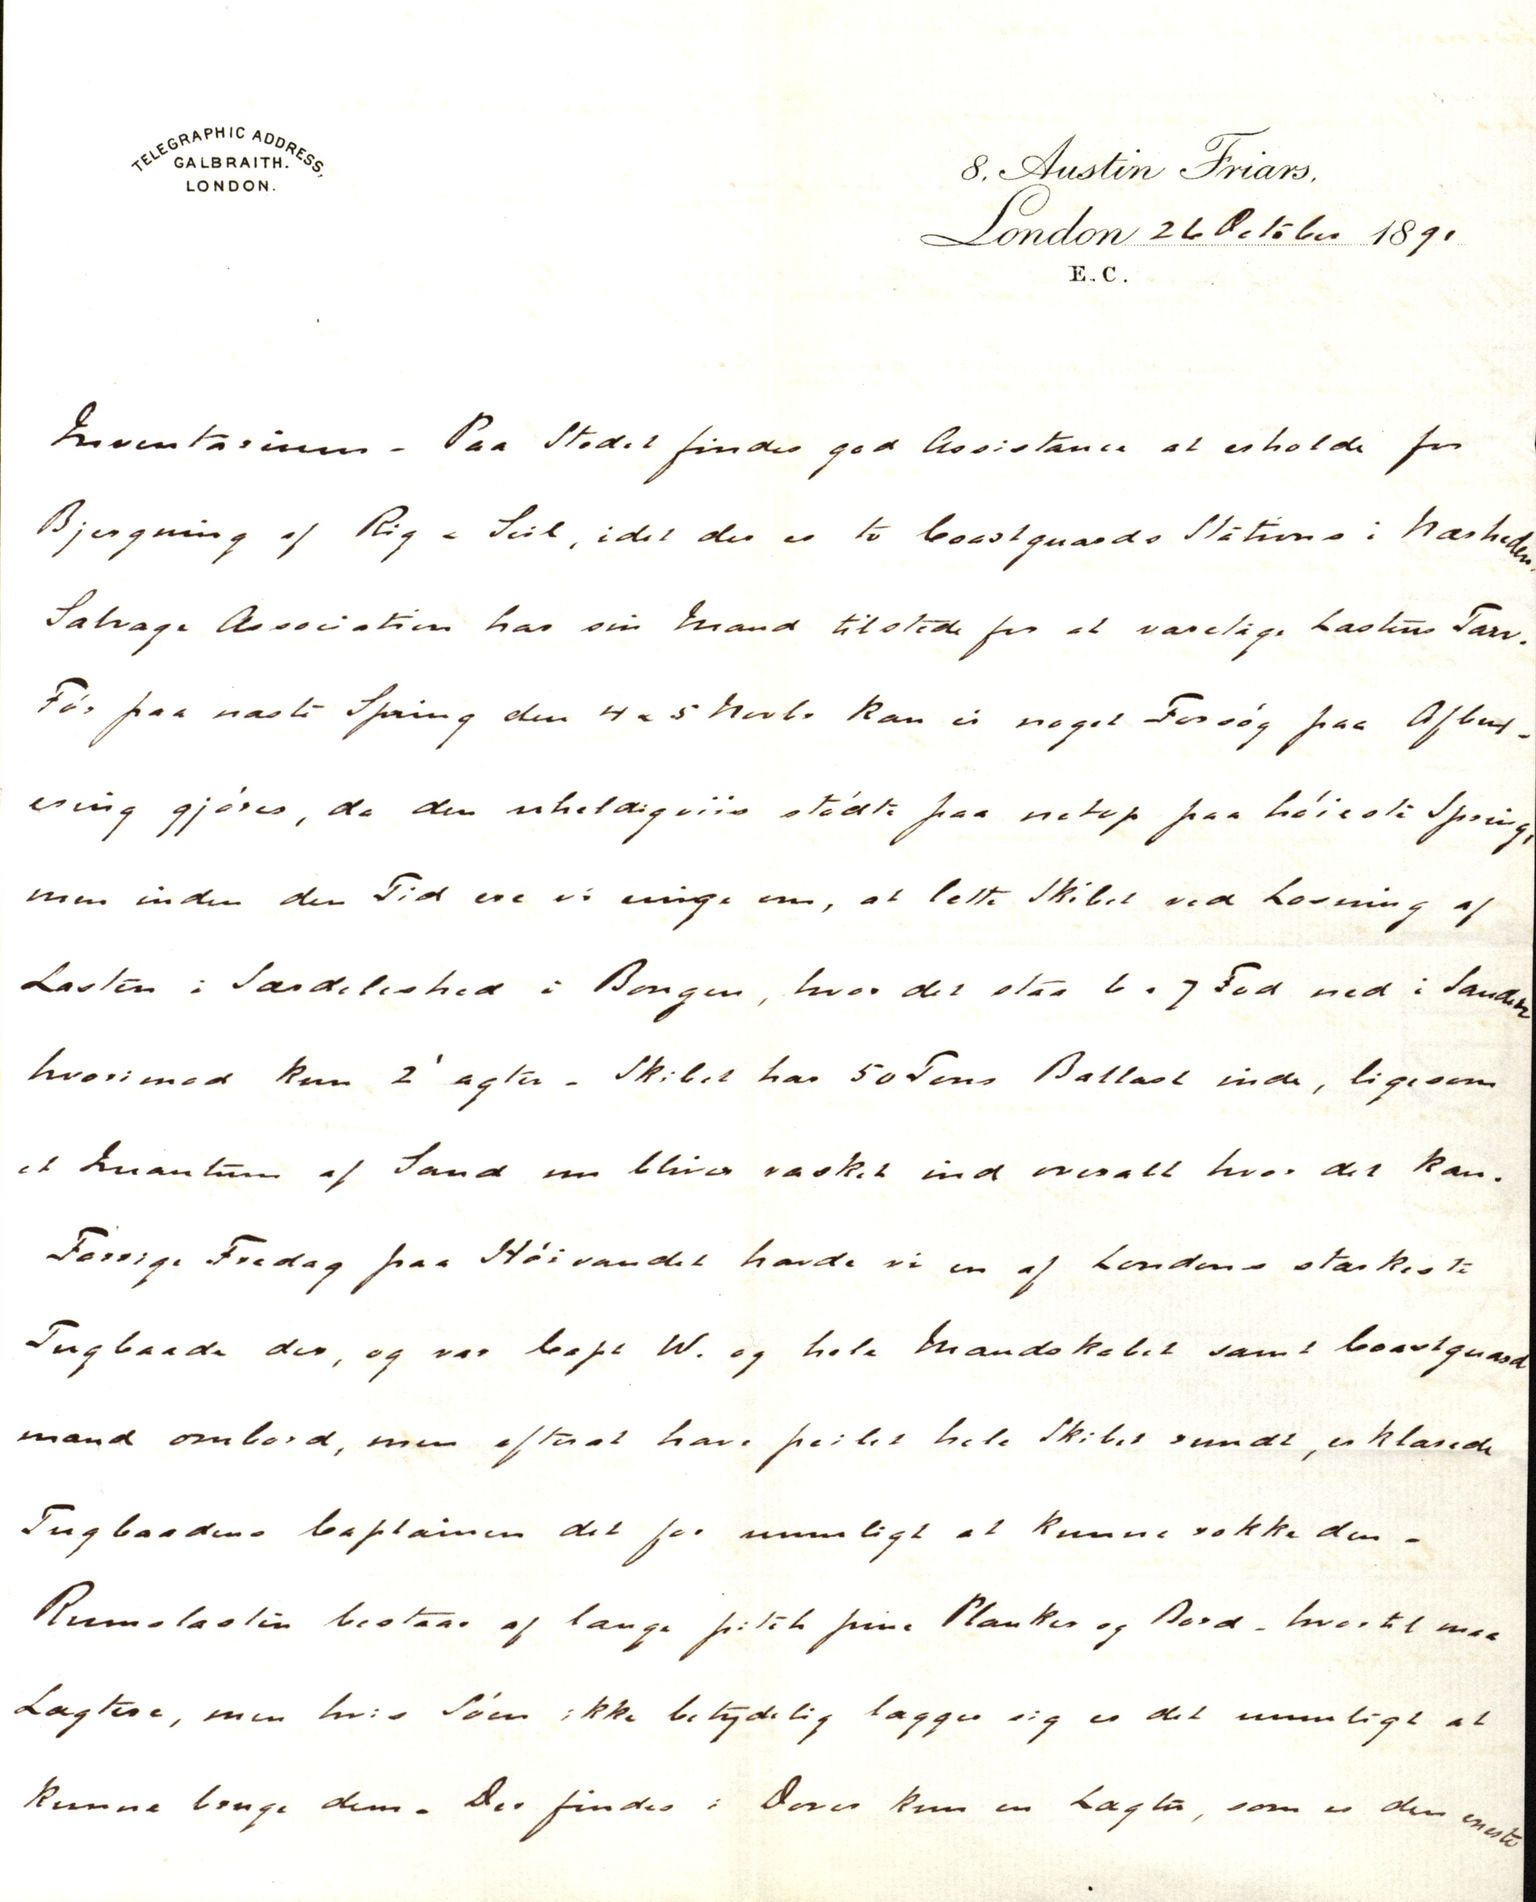 TELEGRAPHIC ADDRESS,
GALBRAITH.
LONDON.
8. Austin Friars.
London 26 October 1891
E.C.
Inventarium - Paa Stedet findes god Assistance at erholde for
Bjergning af Rig & Seil, idet der er to Coastguards Stations i Nærheden.
Salvage Association har sin Mand tilstede for at varetage Lastens Tarv.
Før paa næste Spring den 4 a 5 Novbr kan ei noget Forsøg paa Afbux-
ering gjøres, da den uheldigviis stødte paa netop paa høieste Spring,
men inden den Tid ere vi enige om, at lette Skibet ved Losning af
Lasten i Særdeleshed i Bougen, hvor det staa 6 a 7 Fod ned i Sanden
hvorimod kun 2' agter - Skibet har 50 Tons Ballast inde, ligesom
et Quantum af Sand nu bliver vasket ind overalt hvor det kan.
Forrige Fredag paa Høivandet havde vi en af Londons stærkeste
Tugbaade der, og var Capt W. og hele Mandskabet samt Coastguard
mand ombord, men efterat have peilet hele Skibet rundt, erklærede
Tugbaadens Captainen det for umuligt at kunne rokke den -
Rumslasten bestaar af lange pitch pine Planker og Bord - hvortil maa
Lægtere, men hvis Søen ikke betydelig lægger sig er det umuligt at
kunne bruge dem - Der findes i Dover kun en Lægter, som er den eneste